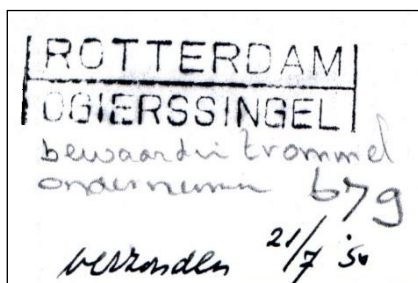 ROTTERDAM
OGIERSSINGEL
bewaard in trommel
onder nummer 679
verzonden 21/7 '50